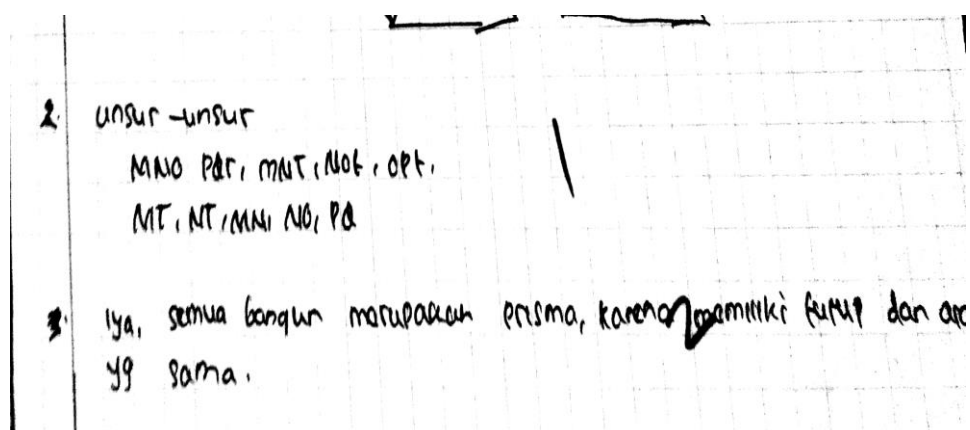 2. unsur-unsur
MNO PQr, MNT, NOt, OPt,
MT, NT, MN, NO, PQ
3. Iya, semua bangun merupakan prisma, karena memiliki tutup dan
yg sama.